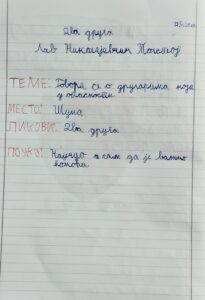 Два друга
Лав Николајевич Толстој
ТЕМЕ: Говори се о другарима која
у опасности
МЕСТО: Шума
ЛИКОВИ: Два друга
ПОУКУ: Научио сам да је важно